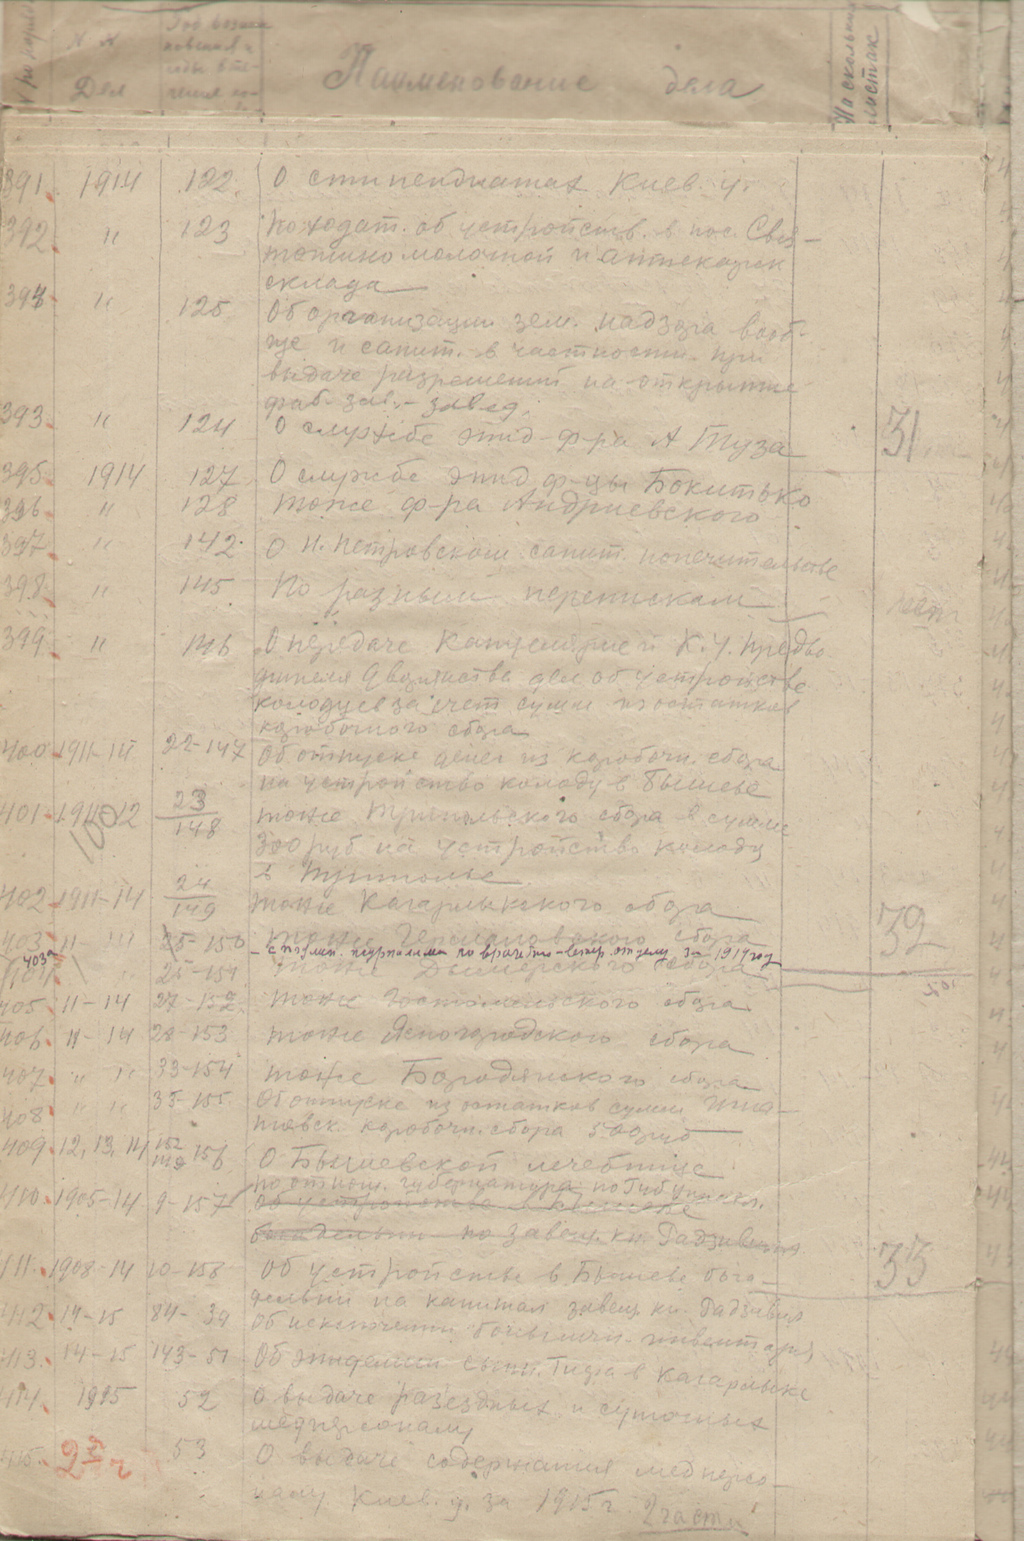 № по пор.
№ № Дел
Наименование дела
На скольких листах
391. 1914 122. О стипендиатах Киев. у.
392 " 123 По ходат. об устройств. в пос. Свя-
тошино молочной и аптекарск
склада
394 " 125 Об организации зем. надзора вооб-
ще и санит. в частности при
выдаче разрешений на открытие
фаб.-зав. завед.
393. " 124 О службе эпид. ф-ра А Туза 31
395. 1914 127 О службе эпид ф-цы Бокитько
396 " 128 тоже ф-ра Андриевского
397 " 142 О Н. Петровском санит. попечительстве
398. " 145 По разным перепискам нет
399 " 146 О передаче Канцелярией К. У. Предво
дителя Дворянства дел об устройстве
колодцев за счет сумм из остатков
коробочного сбора
400 1911-14 22-147 Об отпуске денег из коробочн. сбора
на устройство колодц в Бышеве
401 12 23/148 тоже Трипольского сбора в сумме
300 руб на устройство колодц
в Триполье
402 1911-14 24/149 тоже Кагарлыкского сбора 32
403 11- 25-150 тоже Германовского сбора
403а с поэмен. журналами по врачебно-ветер. отделу за 1919 год
тоже Дымерского сбора
405 11-14 27-152 тоже Гостомельского сбора
406 11-14 28-153 тоже Ясногородского сбора
407 " " 33-154 тоже Бородянского сбора
408 " " 35-155 Об отпуске из остатков сумм Игна-
тьевск. коробочн. сбора
409 12, 13, 14 156 О Бышевской лечебнице
по отнош. губернатора
410 1905-14 9-157 Об устройстве в Бышеве
богадельни по завещ. кн. Радзивилл
411. 1908-14 10-158 Об устройстве в Бышеве бога- 33
дельни на капитал завещ. кн. Радзивил
412 14-15 84-39 Об исключении больничн. инвентаря
413. 14-15 143-51 Об эпидемии сыпн. Тифа в Кагарлыке
414. 1915 52 О выдаче разъездных и суточных
медперсоналу
415. 53 О выдаче содержания медперсо-
налу Киев. у. за 1915 г. 2 части